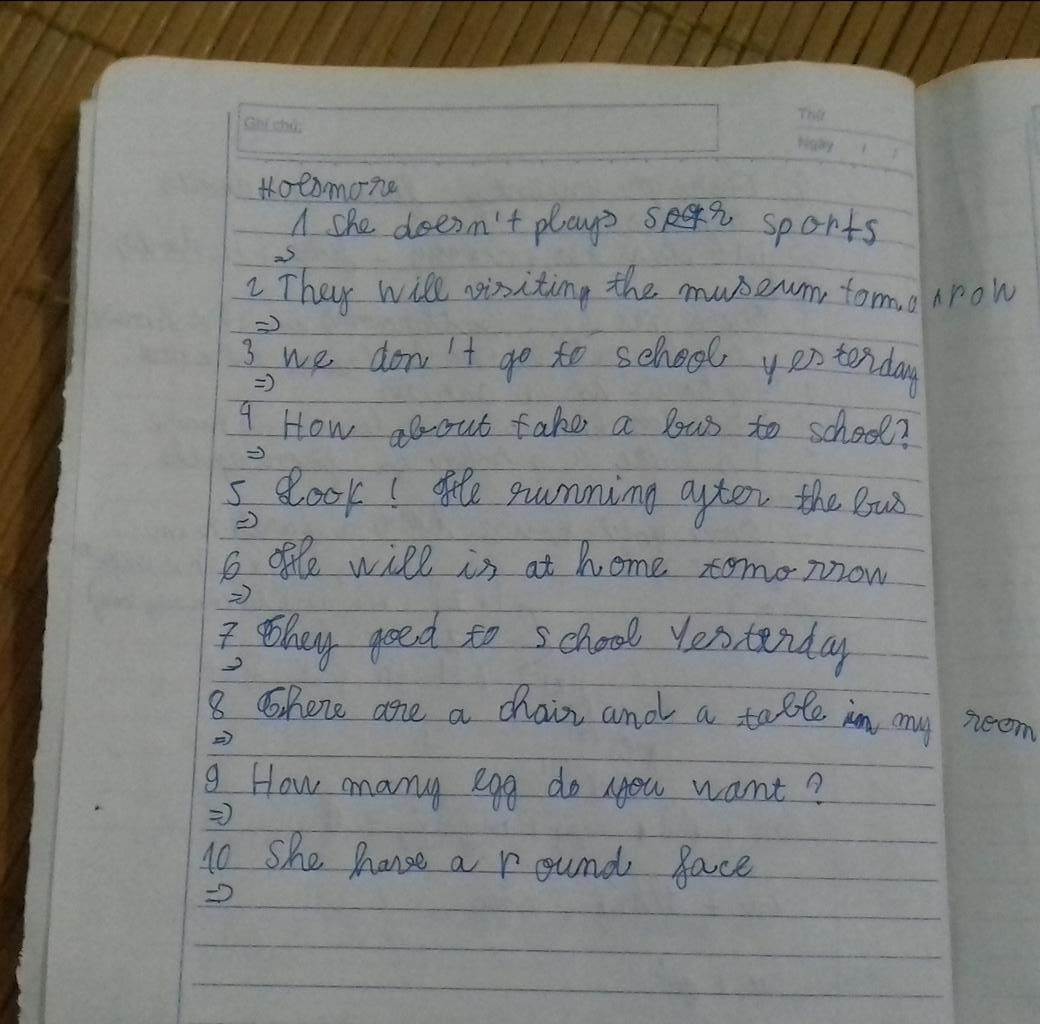 Ghi chú:
Thứ
Ngày / /
1 She doesn't plays sports
=>
2 They will visiting the museum tomorrow
=>
3 We don't go to school yesterday
=>
4 How about take a bus to school?
=>
5 Look! He running after the bus
=>
6 He will is at home tomorrow
=>
7 They goed to school Yesterday
=>
8 There are a chair and a table in my room
=>
9 How many egg do you want?
=>
10 She have a round face
=>